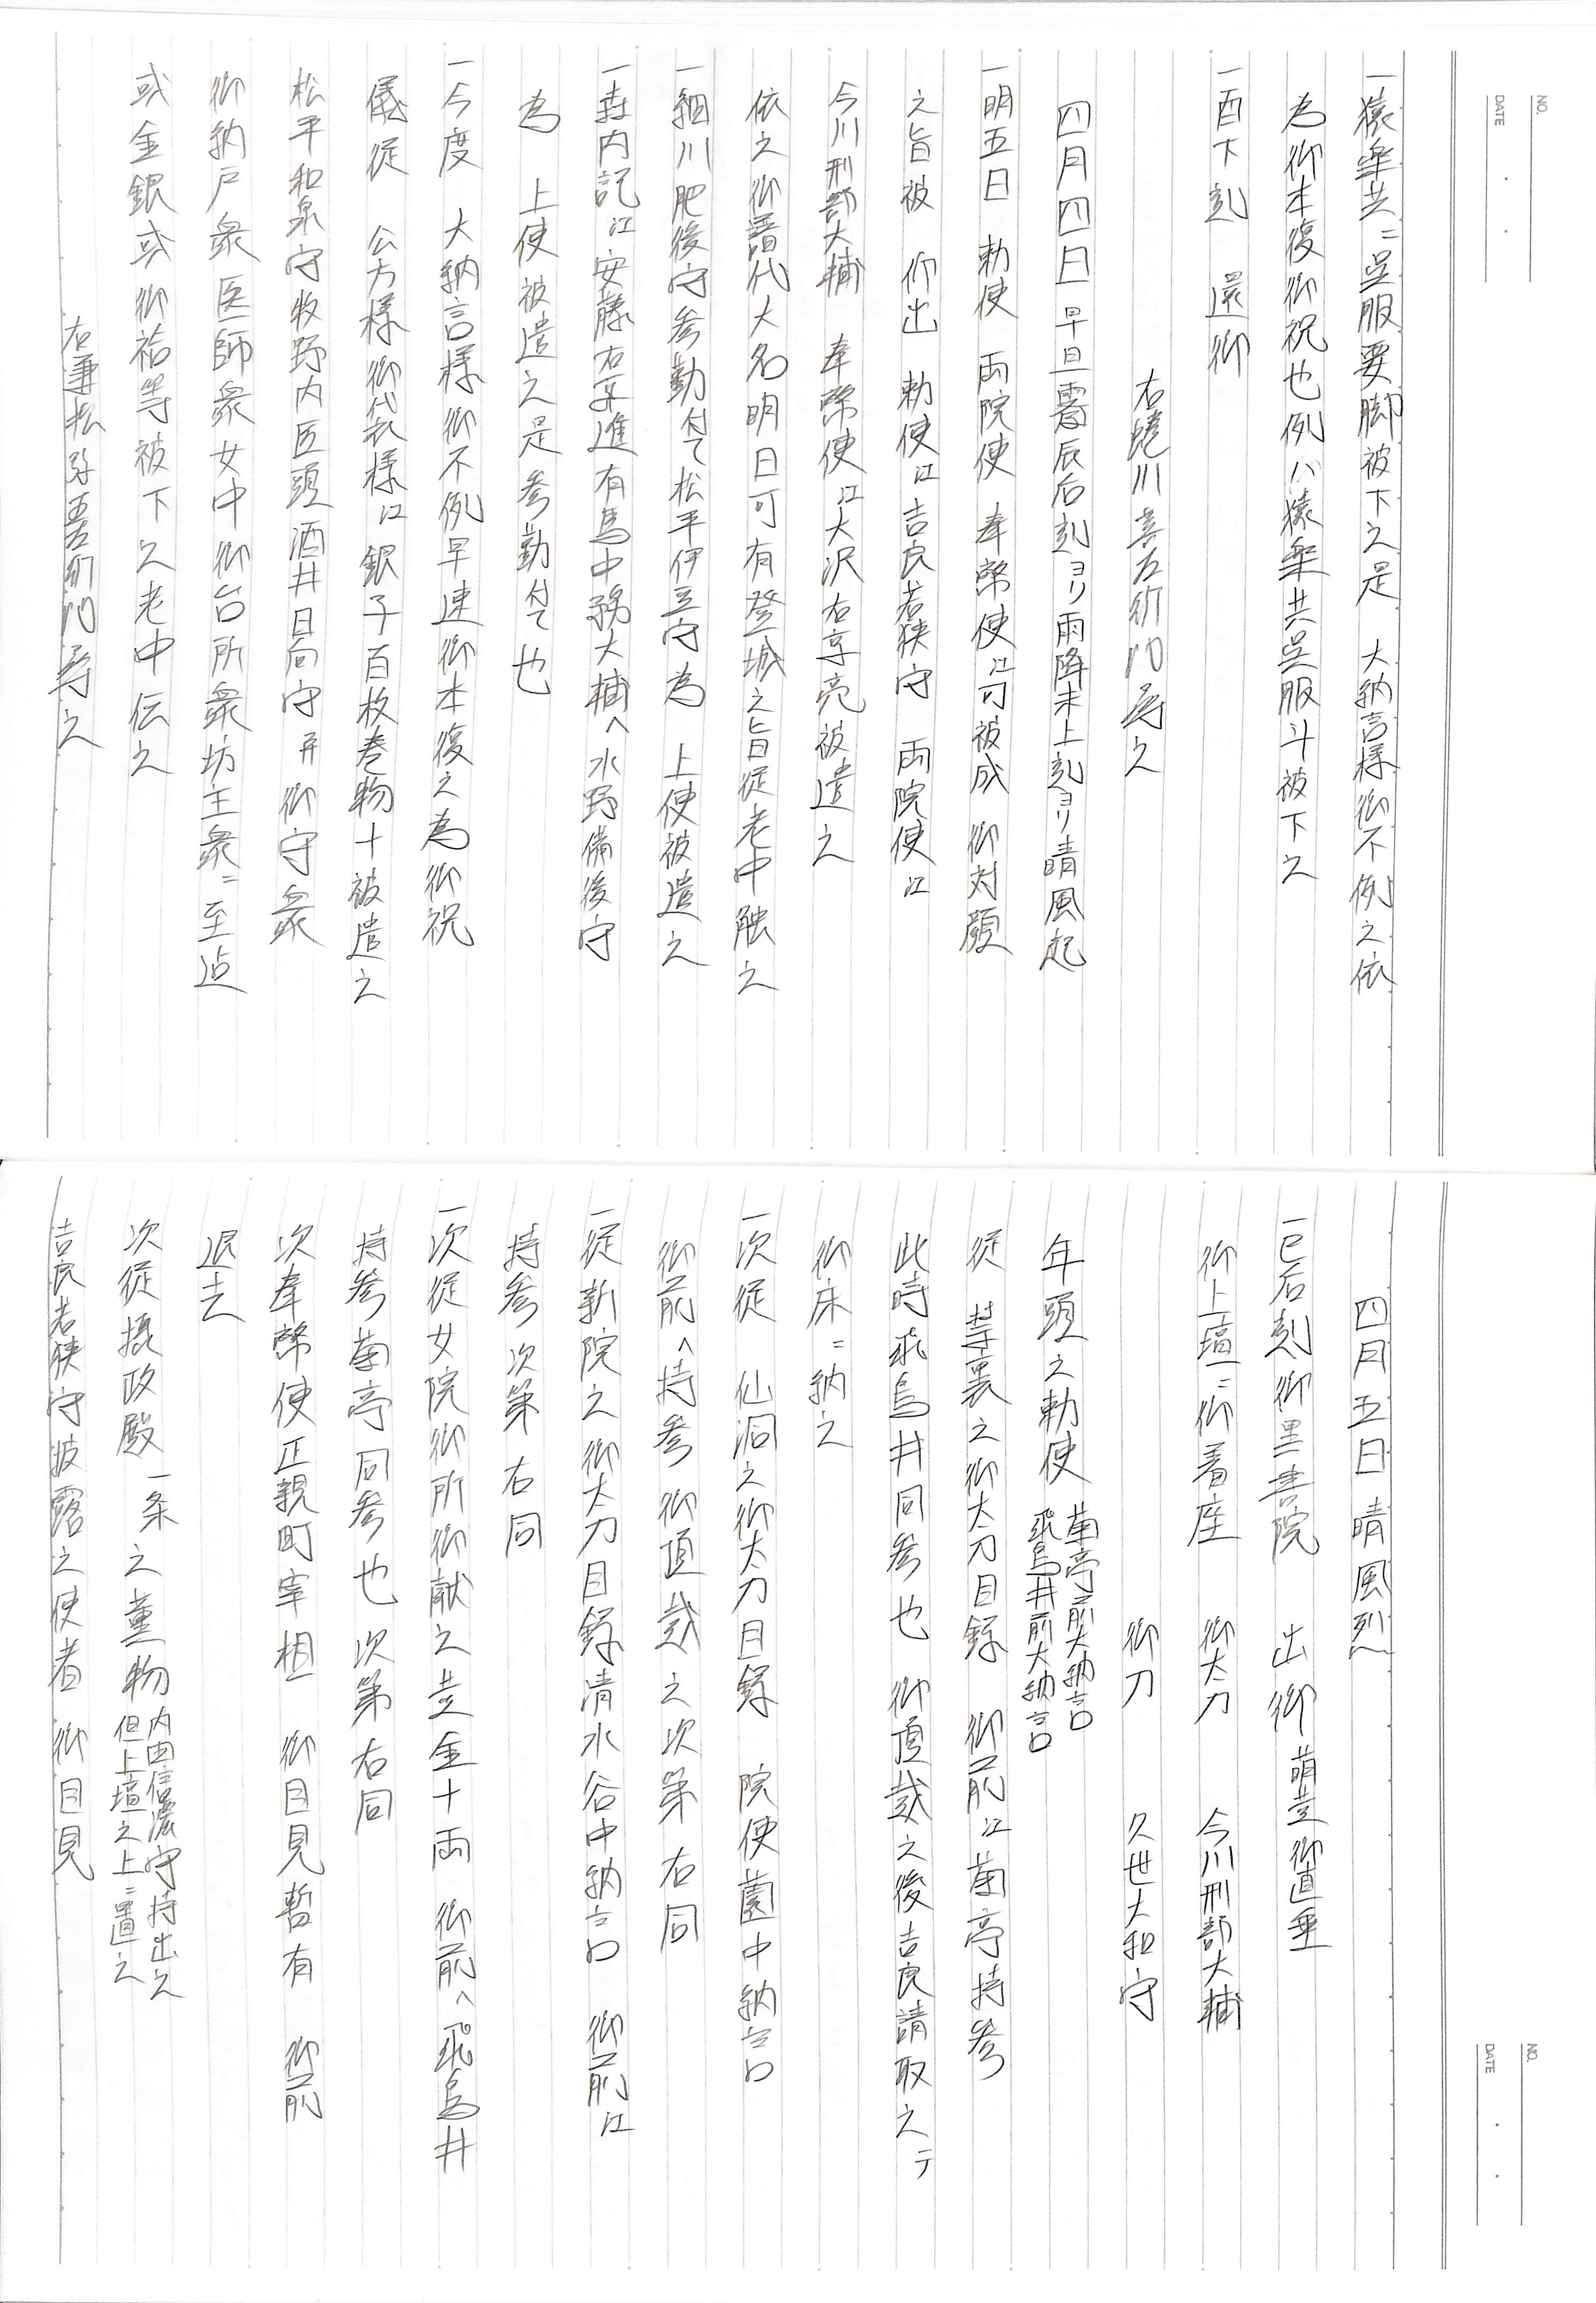 NO.
DATE
一猿楽共ニ呉服要脚被下之是　大納言様御不例之依
為御本復御祝也例ハ猿楽共呉服斗被下之
一酉下刻　還御
右蜷川喜左衛門尋之
四月四日 早旦霧辰后刻ヨリ雨降未上刻ヨリ晴風起
一明五日　勅使　両院使　奉幣使江可被成　御対顔
之旨被　仰出　勅使江吉良若狭守　両院使江
今川刑部大輔　奉幣使江大沢右京亮被遣之
依之御譜代大名明日可有登城之旨従老中触之
一細川肥後守参勤付て松平伊豆守為　上使被遣之
一森内記江安藤右京進有馬中務大輔へ水野備後守
為　上使被遣之是参勤付て也
一今度　大納言様御不例早速御本復之為御祝
儀従　公方様御袋様江銀子百枚巻物十被遣之
松平和泉守牧野内匠頭酒井日向守并御守衆
御納戸衆医師衆女中御台所衆坊主衆ニ至迄
或金銀或御袷等被下之老中伝之
右兼松弥五左衛門尋之
NO.
DATE
四月五日 晴風烈
一巳后刻御黒書院　出御 萌黄御直垂
御上壇ニ御着座　御太刀　今川刑部大輔
御刀　久世大和守
年頭之勅使 菊亭前大納言
飛鳥井前大納言
従　禁裏之御太刀目録　御前江菊亭持参
此時飛鳥井同参也　御頂戴之後吉良請取之テ
御床ニ納之
一次従　仙洞之御太刀目録　院使薗中納言
御前へ持参御頂戴之次第右同
一従新院之御太刀目録清水谷中納言　御前江
持参次第右同
一次従女院御所御献之黄金十両　御前へ飛鳥井
持参菊亭同参也次第右同
次奉幣使正親町宰相　御目見暫有　御前
退去
次従摂政殿 一条 之薫物 内田信濃守持出之
但上壇之上ニ置之
吉良若狭守披露之使者　御目見